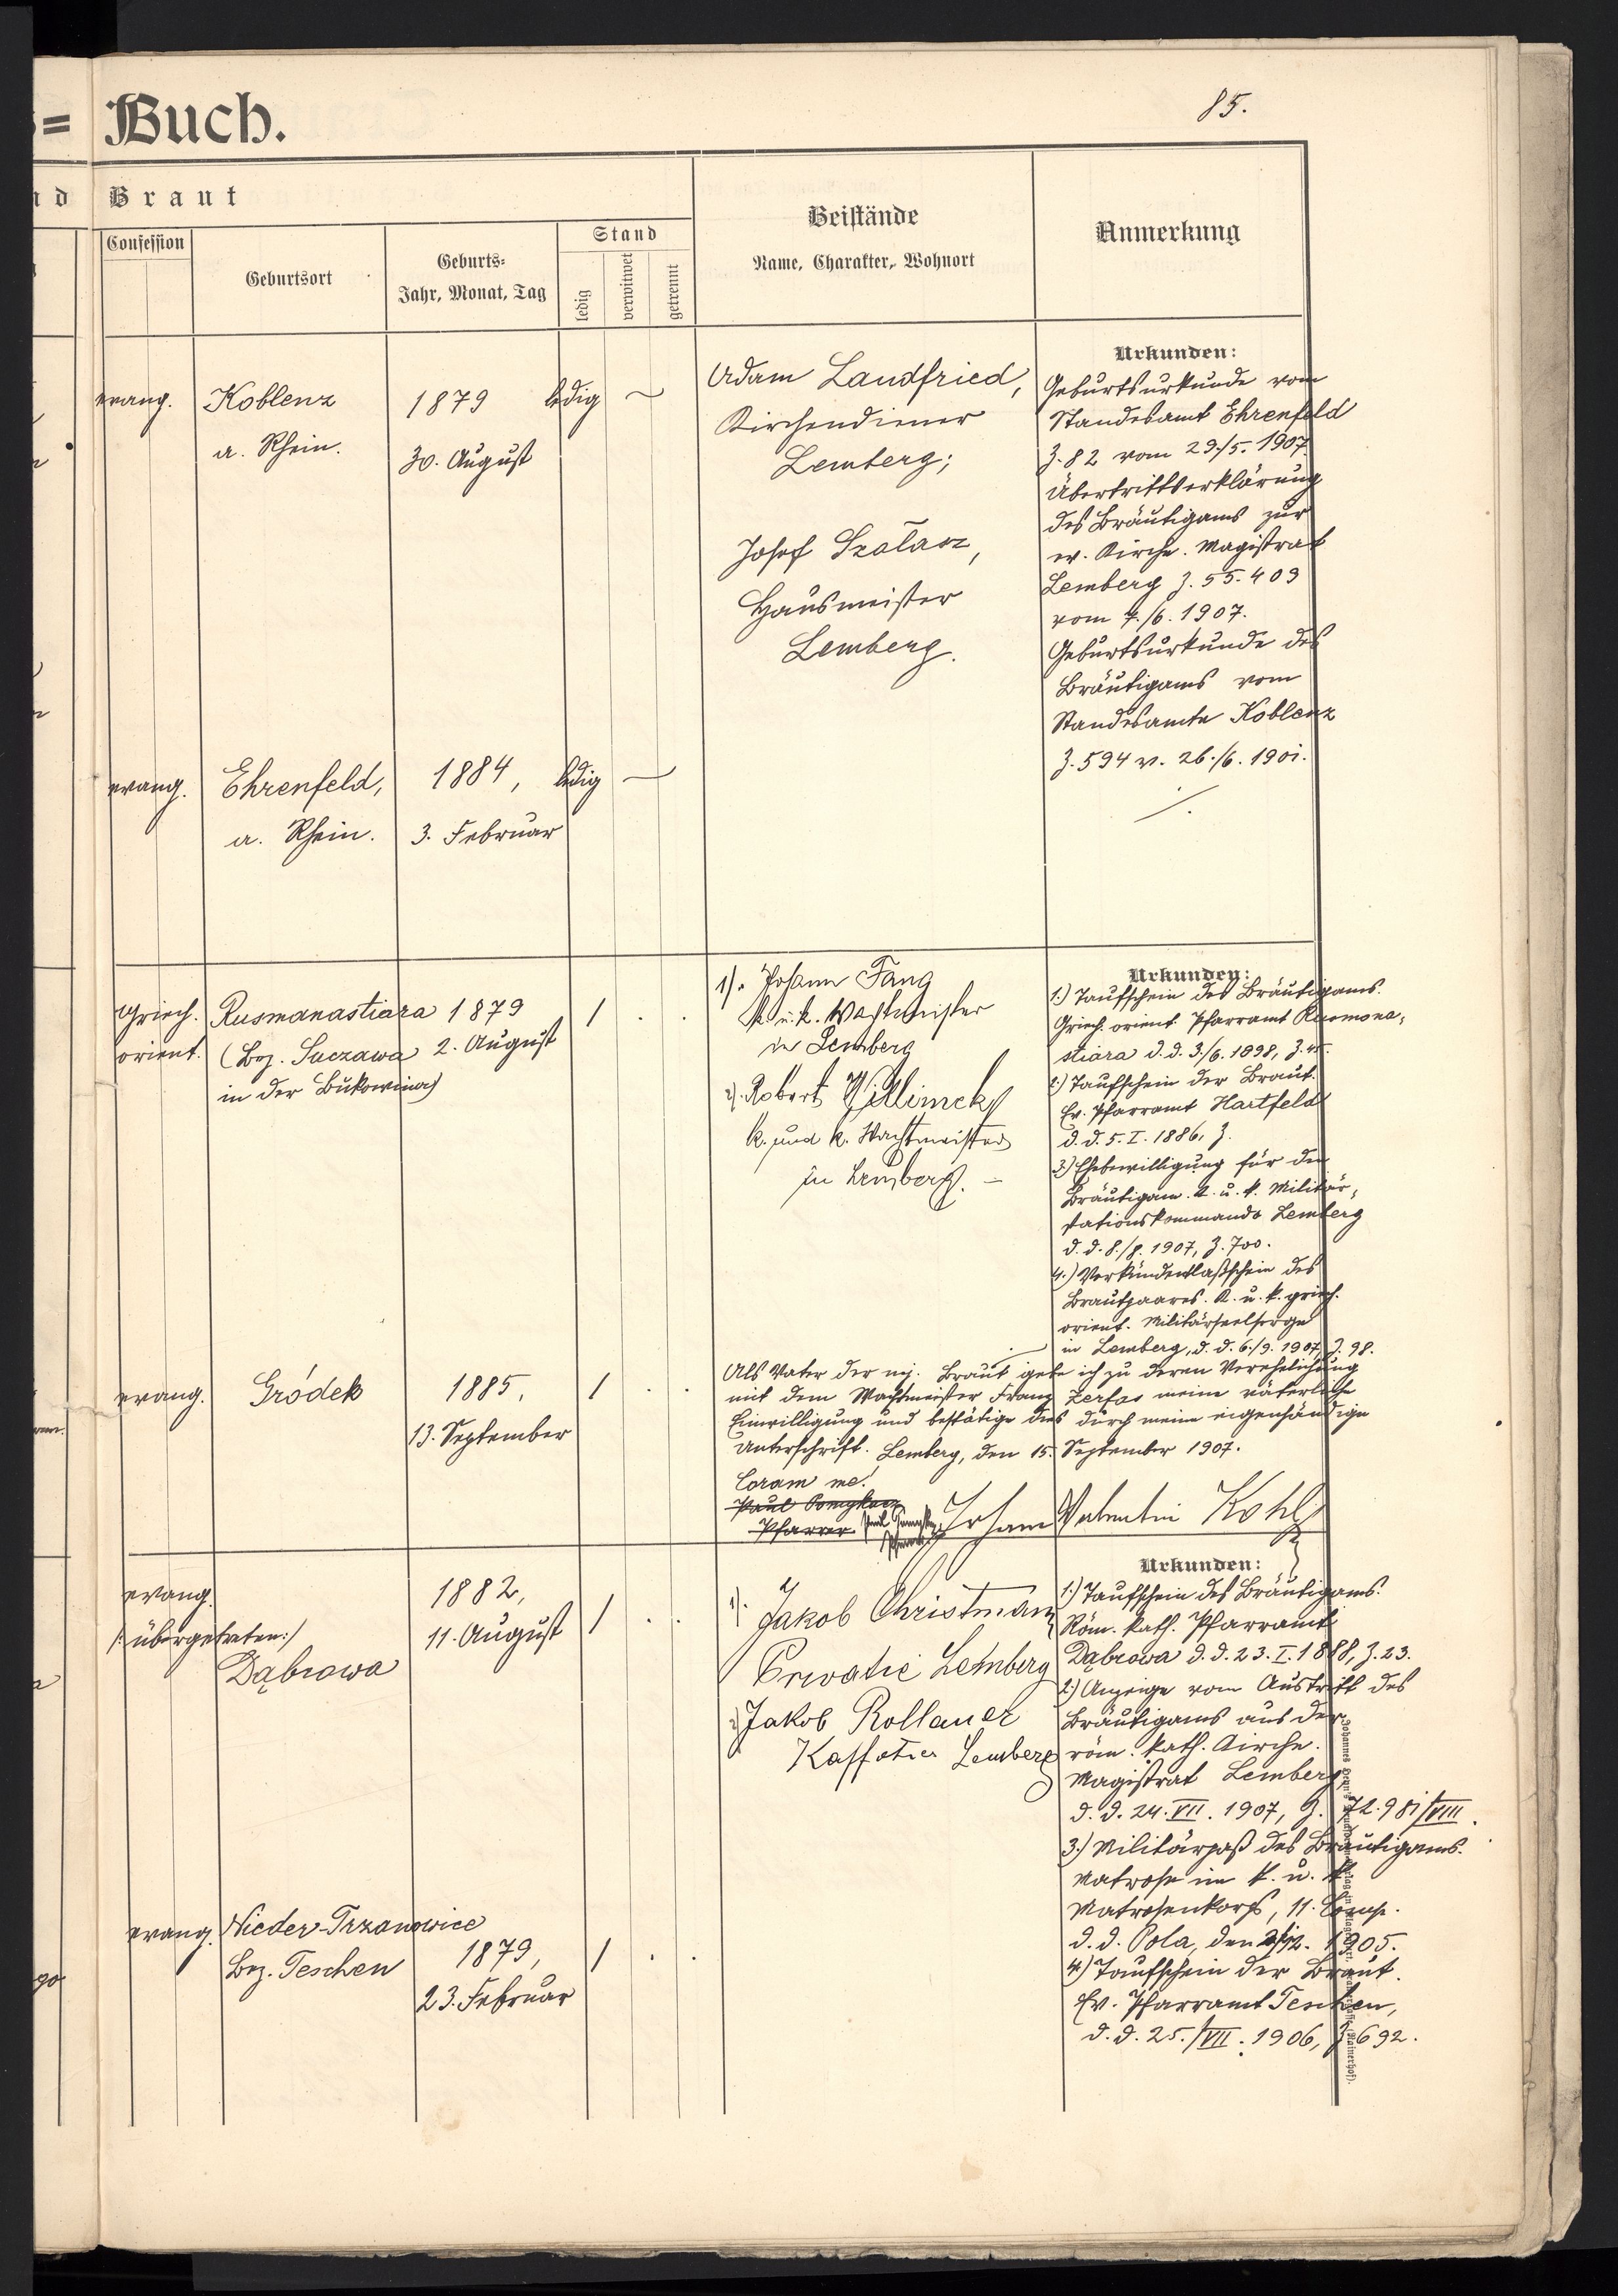 85.
= Buch.
nd Braut
Confession
Geburtsort
Geburts=
Jahr, Monat, Tag
Stand
ledig
verwitwet
getrennt
Beistände
Name, Charakter, Wohnort
Anmerkung
evang.
Koblenz
a. Rhein.
1879
30. August
ledig
Adam Landfried,
Kirchendiener
Lemberg;
Josef Szałasz,
Hausmeister
Lemberg.
Urkunden:
Geburtsurkunde vom
Standesamt Ehrenfeld
Z. 82 vom 29/5. 1907.
Übertrittserklärung
des Bräutigams zur
ev. Kirche. Magistrat
Lemberg Z. 55.409
vom 4./6. 1907.
Geburtsurkunde des
Bräutigams vom
Standesamte Koblenz
Z. 594 v. 26./6. 1901.
evang.
Ehrenfeld,
a. Rhein.
1884,
3. Februar
ledig
Griech.
orient.
Rusmanastiara
(Bez. Suczawa
in der Bukowina)
1879
2. August
1
1). Johann Fang
k. u. k. Wachtmeister
in Lemberg
2). Robert Willimek
k. und k. Wachtmeister
in Lemberg. –
Urkunden:
1.) Taufschein des Bräutigams.
Griech. orient. Pfarramt Rusmona=
stiara d. d. 3./6. 1898, Z.
2.) Taufschein der Braut.
Ev. Pfarramt Hartfeld
d. d. 5. I. 1886, Z.
3.) Ehebewilligung für den
Bräutigam. K. u. k. Militär=
stationskommando Lemberg
d. d. 8./8. 1907, Z. 700.
4.) Verkündentlaßschein des
Brautpaares. K. u. k. griech.
orient. Militärseelsorge
in Lemberg, d. d. 6./9. 1907, Z. 98.
evang.
Gródek
1885,
13. September
1
Als Vater der mj. Braut gebe ich zu deren Verehelichung
mit dem Wachtmeister Franz Zerfas meine väterliche
Einwilligung und bestätige dies durch meine eigenhändige
Unterschrift. Lemberg, den 15. September 1907.
Coram me!
Pfarrer.
Johann Valentin Kohl
evang.
/: übergetreten :/
Dąbrowa
1882,
11. August
1
1). Jakob Christman
Privatie Lemberg
2). Jakob Rollauer
Lemberg
Urkunden:
1.) Taufschein des Bräutigams.
Röm. kath. Pfarramt
Dąbrowa d. d. 23. I. 1888, Z. 23.
2.) Anzeige vom Austritt des
Bräutigams aus der
röm. kath. Kirche.
Magistrat Lemberg,
d. d. 24. VII. 1907, Z. 72.981/VIII.
3.) Militärpaß des Bräutigams.
Matrose im k. u. k.
Matrosenkorps, 11. Comp.
d. d. Pola, den 1905.
4.) Taufschein der Braut.
Ev. Pfarramt Teschen,
d. d. 25./VII. 1906, Z. 692.
evang.
Nieder-Trzanowice
Bez. Teschen
1879,
23. Februar
1